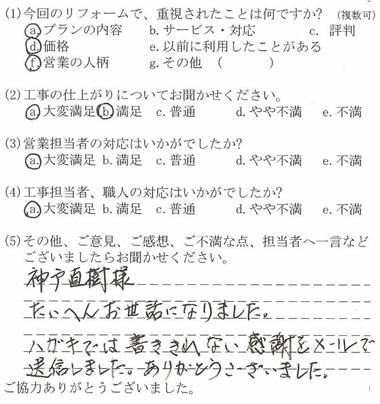 (1)今回のリフォームで、重視されたことは何ですか? (複数可)
a.プランの内容 b.サービス・対応 c. 評判
d.価格 e.以前に利用したことがある
f.営業の人柄 g.その他 ( )
(2)工事の仕上がりについてお聞かせください。
a.大変満足 b.満足 c.普通 d.やや不満 e.不満
(3)営業担当者の対応はいかがでしたか?
a.大変満足 b.満足 c.普通 d.やや不満 e.不満
(4)工事担当者、職人の対応はいかがでしたか?
a.大変満足 b.満足 c.普通 d.やや不満 e.不満
(5)その他、ご意見、ご感想、ご不満な点、担当者へ一言など
ございましたらお聞かせください。
神戸直樹様
たいへんお世話になりました。
ハガキでは書ききれない感謝をメールで
送信しました。ありがとうございました。
ご協力ありがとうございました。